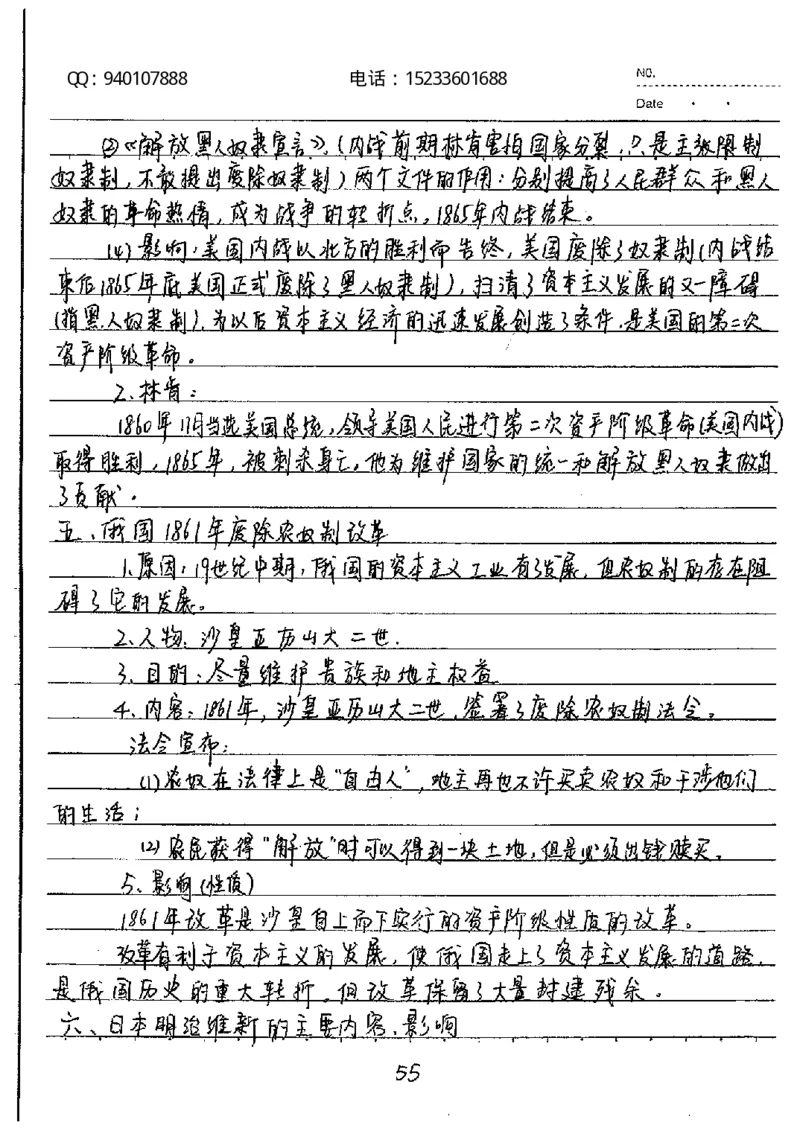 QQ：940107888 电话：15233601688 NO.
Date · ·
②《解放黑人奴隶宣言》。(内战前期林肯害怕国家分裂，只是主张限制
奴隶制，不敢提出废除奴隶制) 两个文件的作用：分别提高了人民群众和黑人
奴隶的革命热情，成为战争的转折点。1865年内战结束。
(4) 影响：美国内战以北方的胜利而告终，美国废除了奴隶制(内战结
束后1865年底美国正式废除了黑人奴隶制)，扫清了资本主义发展的又一障碍
(指黑人奴隶制)，为以后资本主义经济的迅速发展创造了条件，是美国的第二次
资产阶级革命。
2、林肯：
1860年11月当选美国总统，领导美国人民进行第二次资产阶级革命(美国内战)
取得胜利，1865年，被刺杀身亡。他为维护国家的统一和解放黑人奴隶做出
了贡献。
五、俄国1861年废除农奴制改革
1、原因：19世纪中期，俄国的资本主义工业有了发展，但农奴制的存在阻
碍了它的发展。
2、人物：沙皇亚历山大二世.
3、目的：尽量维护贵族和地主权益
4、内容：1861年，沙皇亚历山大二世，签署了废除农奴制法令。
法令宣布：
(1) 农奴在法律上是“自由人”，地主再也不许买卖农奴和干涉他们
的生活；
(2) 农民获得“解放”时可以得到一块土地，但是必须出钱赎买。
5、影响(性质)
1861年改革是沙皇自上而下实行的资产阶级性质的改革。
改革有利于资本主义的发展，使俄国走上了资本主义发展的道路，
是俄国历史的重大转折。但改革保留了大量封建残余。
六、日本明治维新的主要内容、影响
55